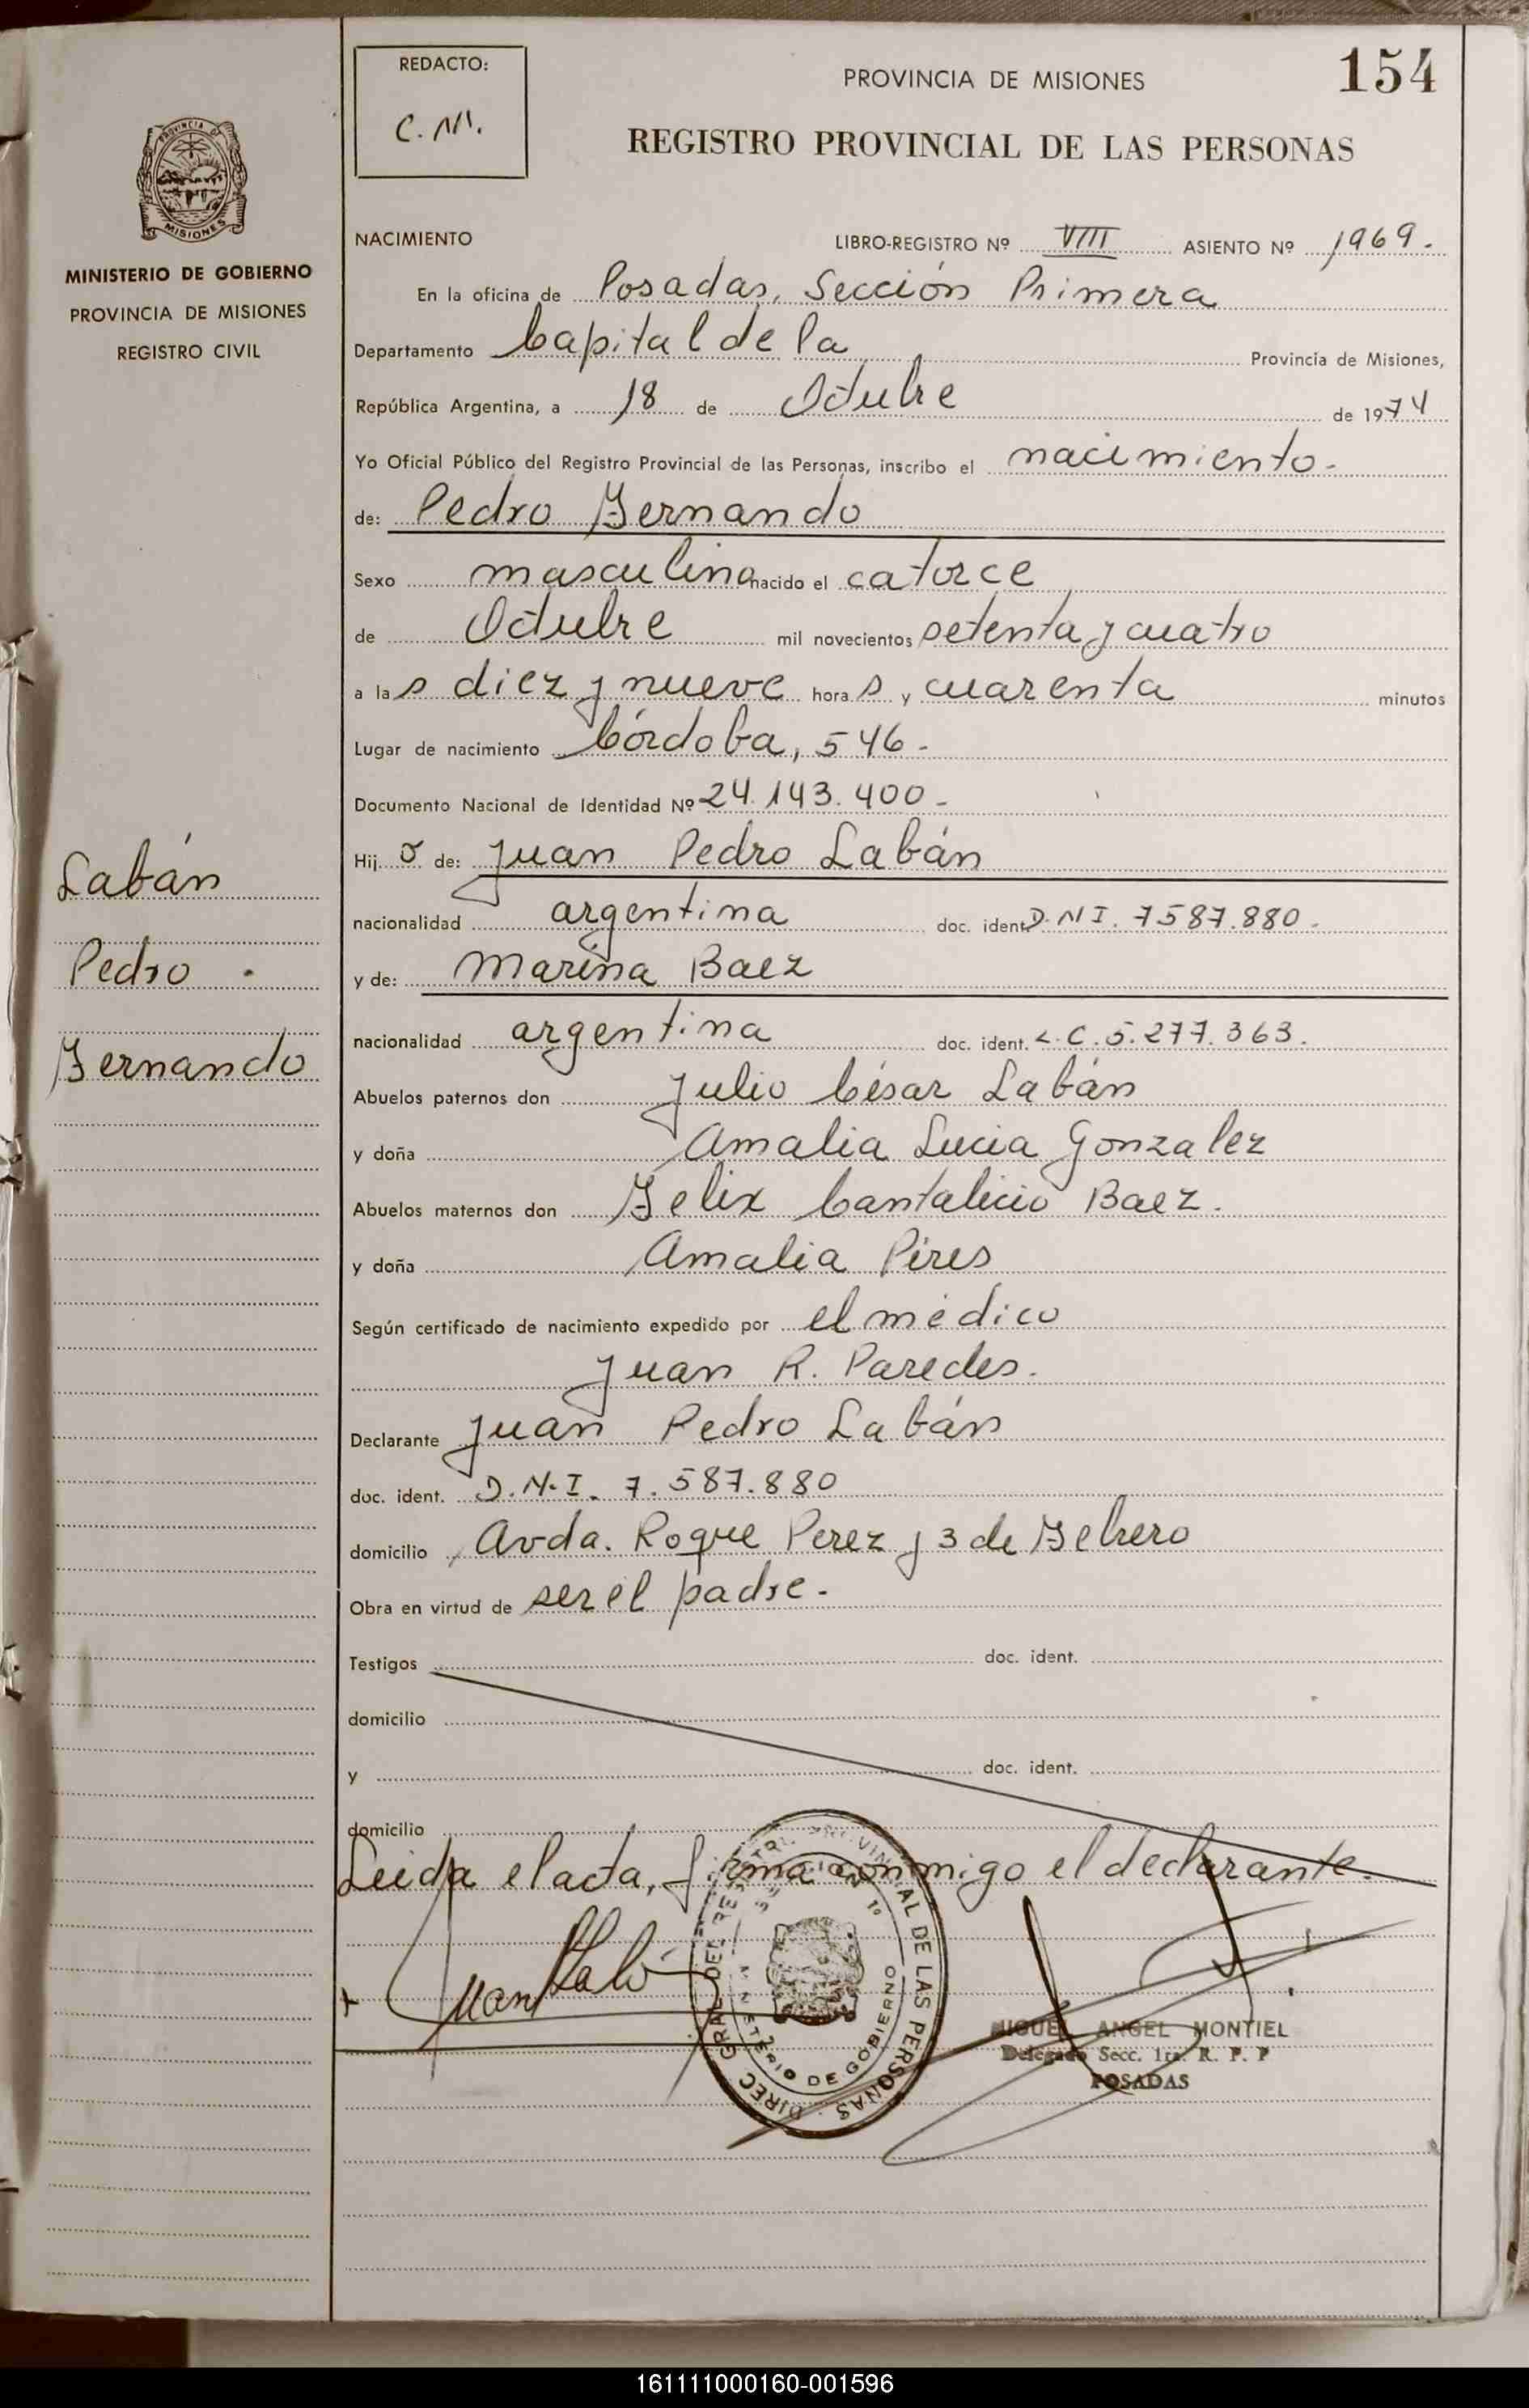 REDACTO:
C. M.
PROVINCIA DE MISIONES
154
REGISTRO PROVINCIAL DE LAS PERSONAS
PROVINCIA DE
MISIONES
MINISTERIO DE GOBIERNO
PROVINCIA DE MISIONES
REGISTRO CIVIL
NACIMIENTO LIBRO-REGISTRO Nº VIII ASIENTO Nº 1969.
En la oficina de Posadas, Sección Primera
Departamento Capital de la Provincia de Misiones,
República Argentina, a 18 de Octubre de 1974
Yo Oficial Público del Registro Provincial de las Personas, inscribo el nacimiento.
de: Pedro Fernando
Sexo masculino nacido el catorce
de Octubre mil novecientos setenta y cuatro
a las diez y nueve horas y cuarenta minutos
Lugar de nacimiento Córdoba, 546.
Documento Nacional de Identidad Nº 24.143.400.
Hijo de: Juan Pedro Labán
nacionalidad argentina doc. ident. D.N I. 7587.880.
y de: Marina Baez
nacionalidad argentina doc. ident. L.C. 5.277.363.
Abuelos paternos don Julio César Labán
y doña Amalia Lucia Gonzalez
Abuelos maternos don Felix Cantalicio Baez.
y doña Amalia Pires
Según certificado de nacimiento expedido por el médico
Juan R. Paredes.
Declarante Juan Pedro Labán
doc. ident. D.N.I. 7.587.880
domicilio Avda. Roque Perez y 3 de Febrero
Obra en virtud de ser el padre.
Testigos doc. ident.
domicilio
y doc. ident.
domicilio
Leida el acta, firma conmigo el declarante.
Labán
Pedro
Fernando
DIREC. GRAL. DEL REGISTRO PROVINCIAL DE LAS PERSONAS
MINISTERIO DE GOBIERNO
MIGUEL ANGEL MONTIEL
Delegado Secc. 1ra. R. P. P
POSADAS
161111000160-001596